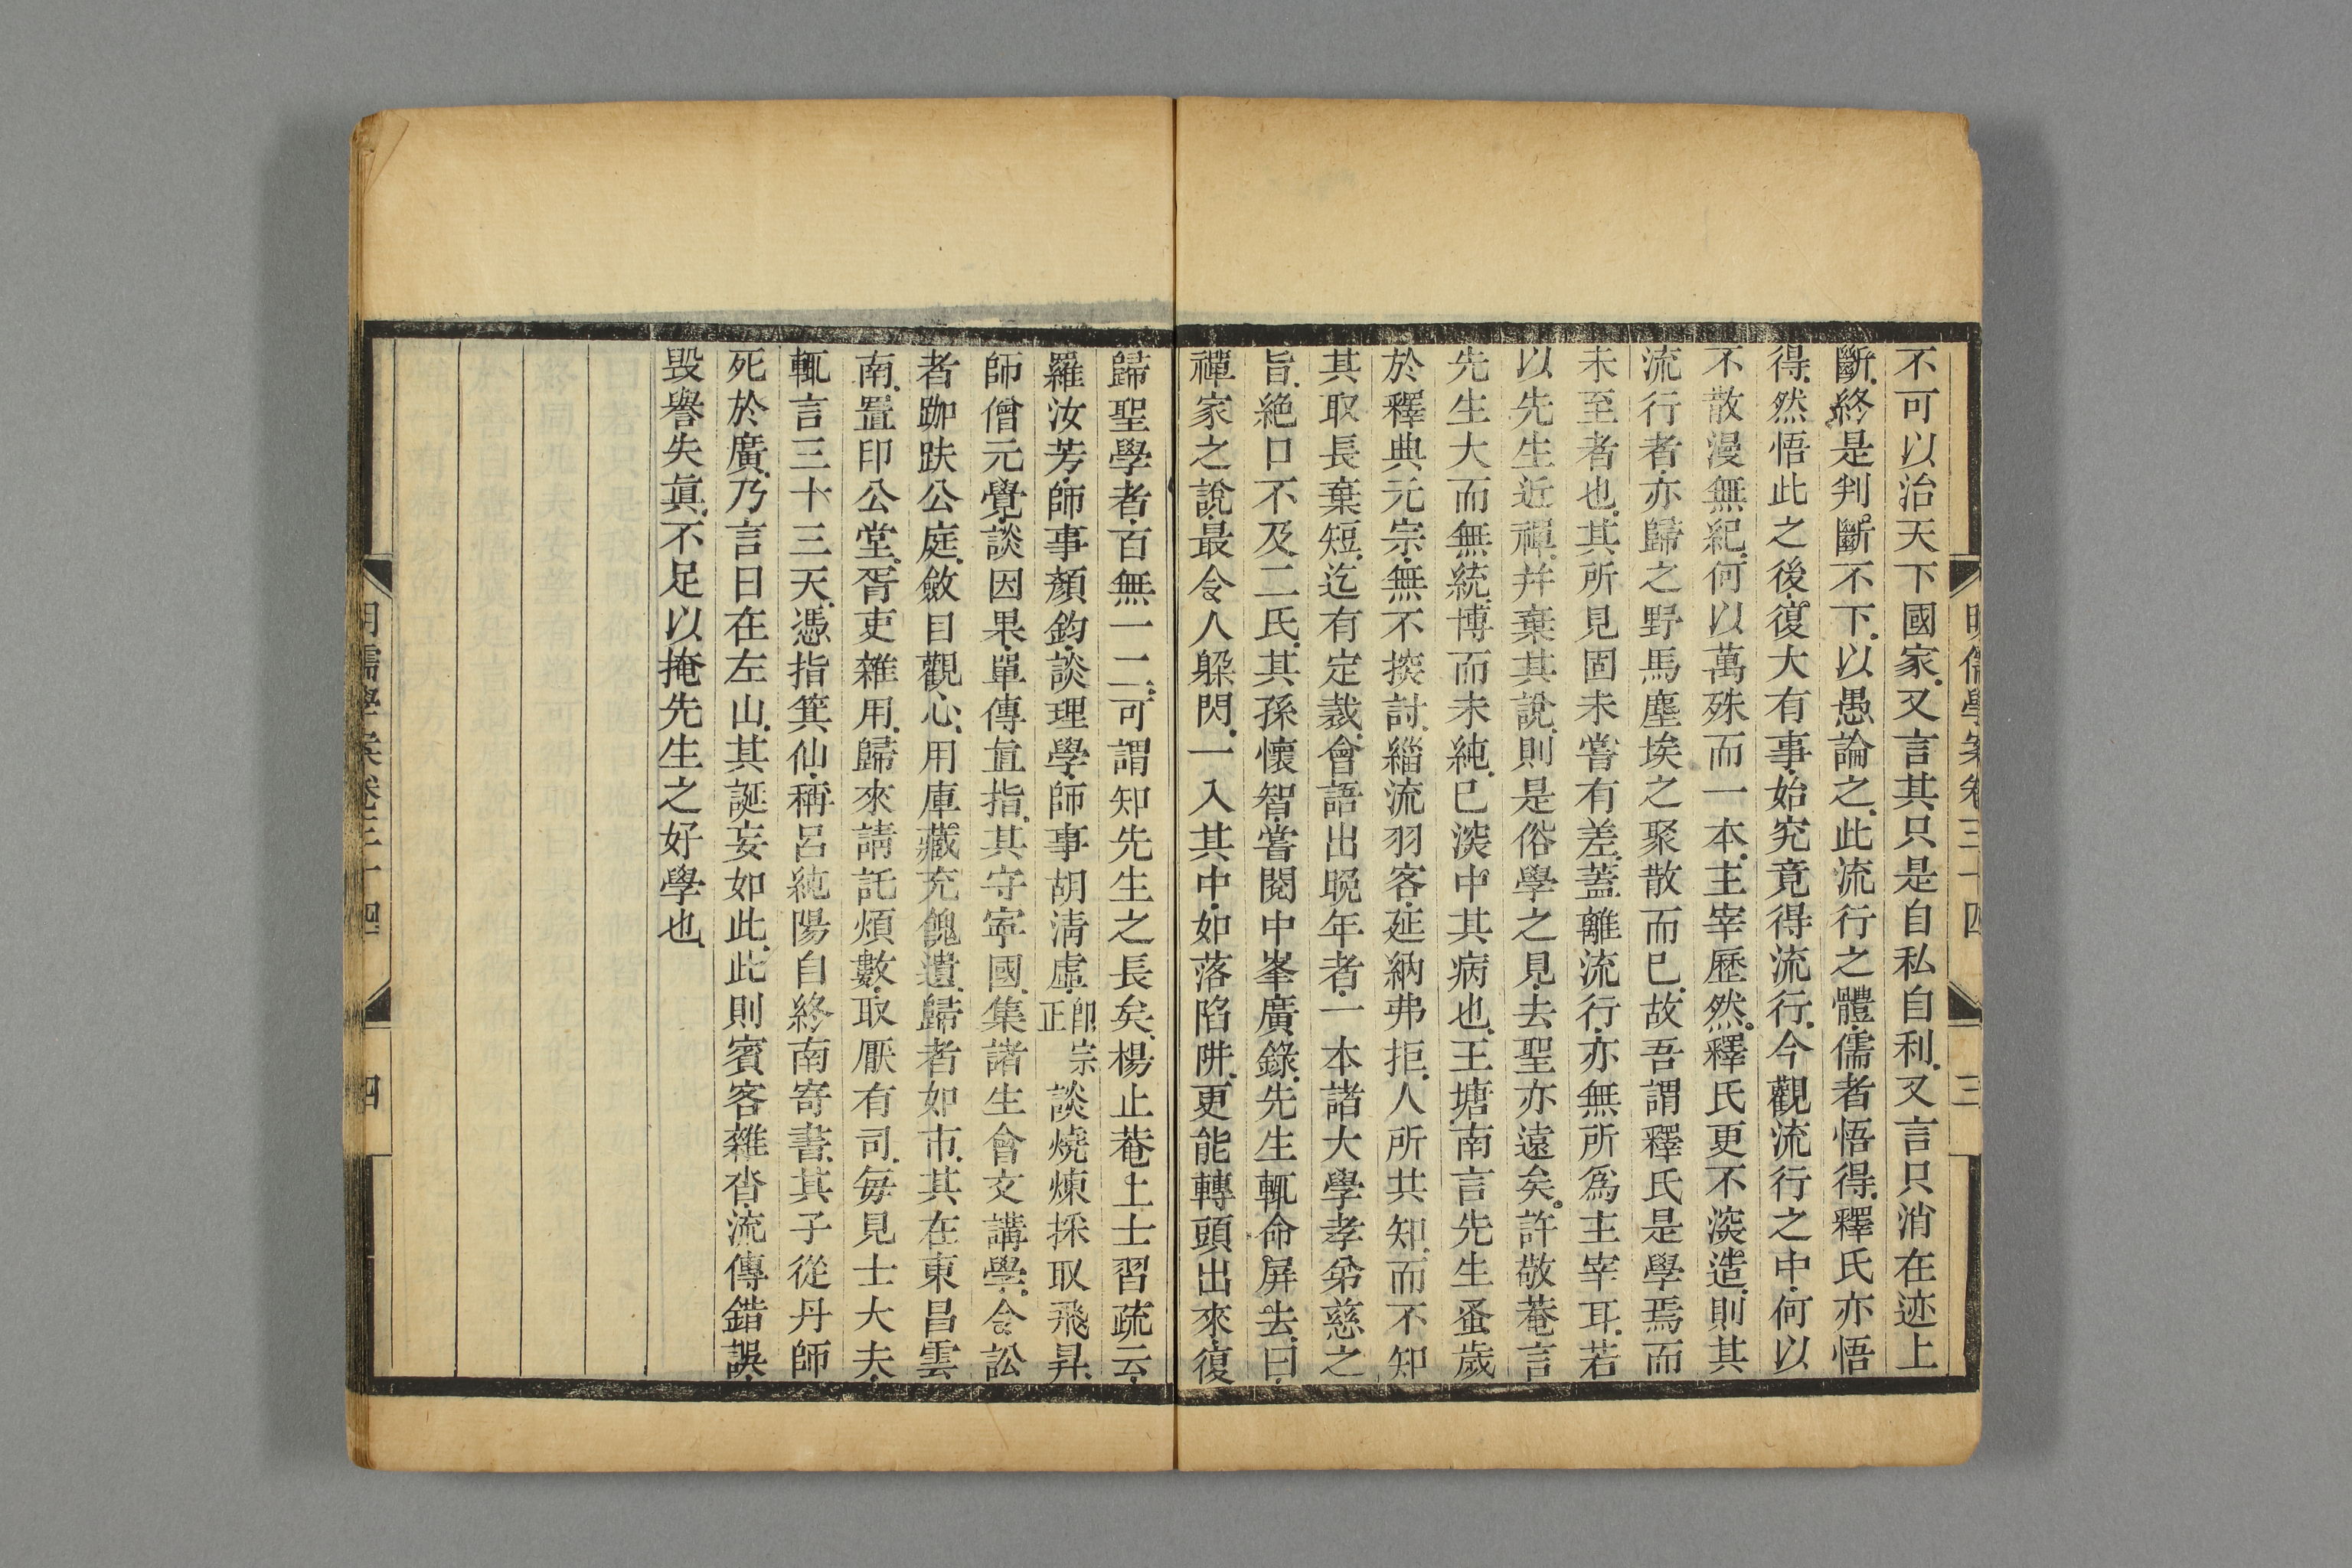 明儒學案卷三十四　三
不可以治天下國家又言其只是自私自利又言只消在迹上
斷終是判斷不下以愚論之此流行之體儒者悟得釋氏亦悟
得然悟此之後復大有事始究竟得流行今觀流行之中何以
不散漫無紀何以萬殊而一本主宰歷然釋氏更不深造則其
流行者亦歸之野馬塵埃之聚散而已故吾謂釋氏是學焉而
未至者也其所見固未嘗有差蓋離流行亦無所為主宰耳若
以先生近禪并棄其說則是俗學之見去聖亦遠矣許敬菴言
先生大而無統博而未純已深中其病也王塘南言先生蚤歲
於釋典元宗無不探討緇流羽客延納弗拒人所共知而不知
其取長棄短迄有定裁會語出晚年者一本諸大學孝弟慈之
旨絕口不及二氏其孫懷智嘗閱中峯廣錄先生輒命屏去曰
禪家之說最令人躲閃一入其中如落陷阱更能轉頭出來復
歸聖學者百無一二可謂知先生之長矣楊止菴上士習疏云
羅汝芳師事顏鈞談理學師事胡清虛卽宗正談燒煉採取飛昇
師僧元覺談因果單傳直指其守寧國集諸生會文講學令訟
者跏趺公庭斂目觀心用庫藏充餽遺歸者如市其在東昌雲
南置印公堂胥吏雜用歸來請託煩數取厭有司每見士大夫
輒言三十三天憑指箕仙稱呂純陽自終南寄書其子從丹師
死於廣乃言日在左山其誕妄如此此則賓客雜沓流傳錯誤
毀譽失眞不足以掩先生之好學也
明儒學案卷三十四　四